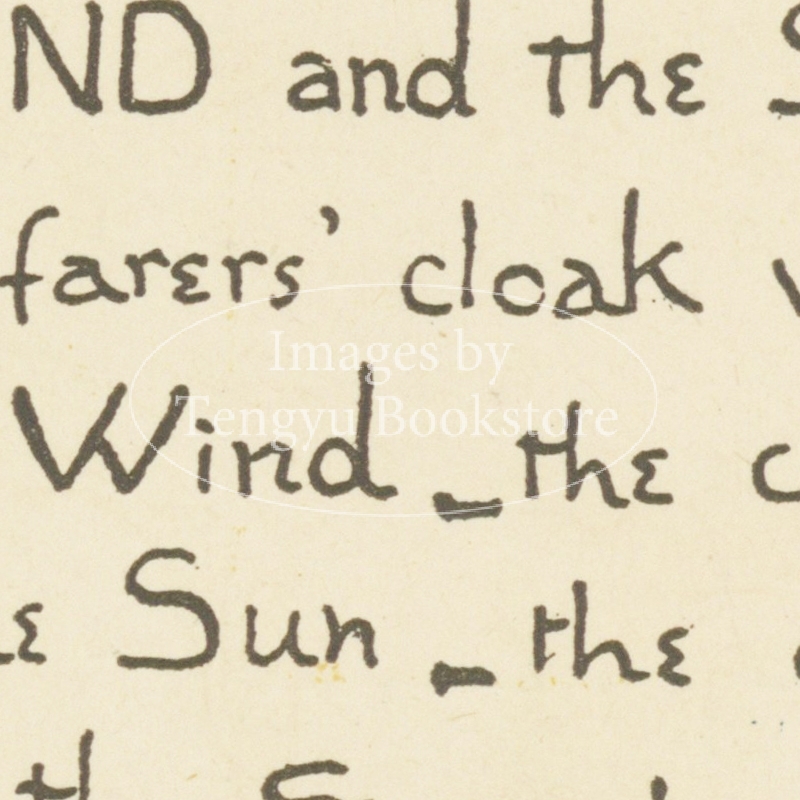 ND and the S
farers' cloak
Wind _ the c
Sun _ the
Images by
Tengyu Bookstore